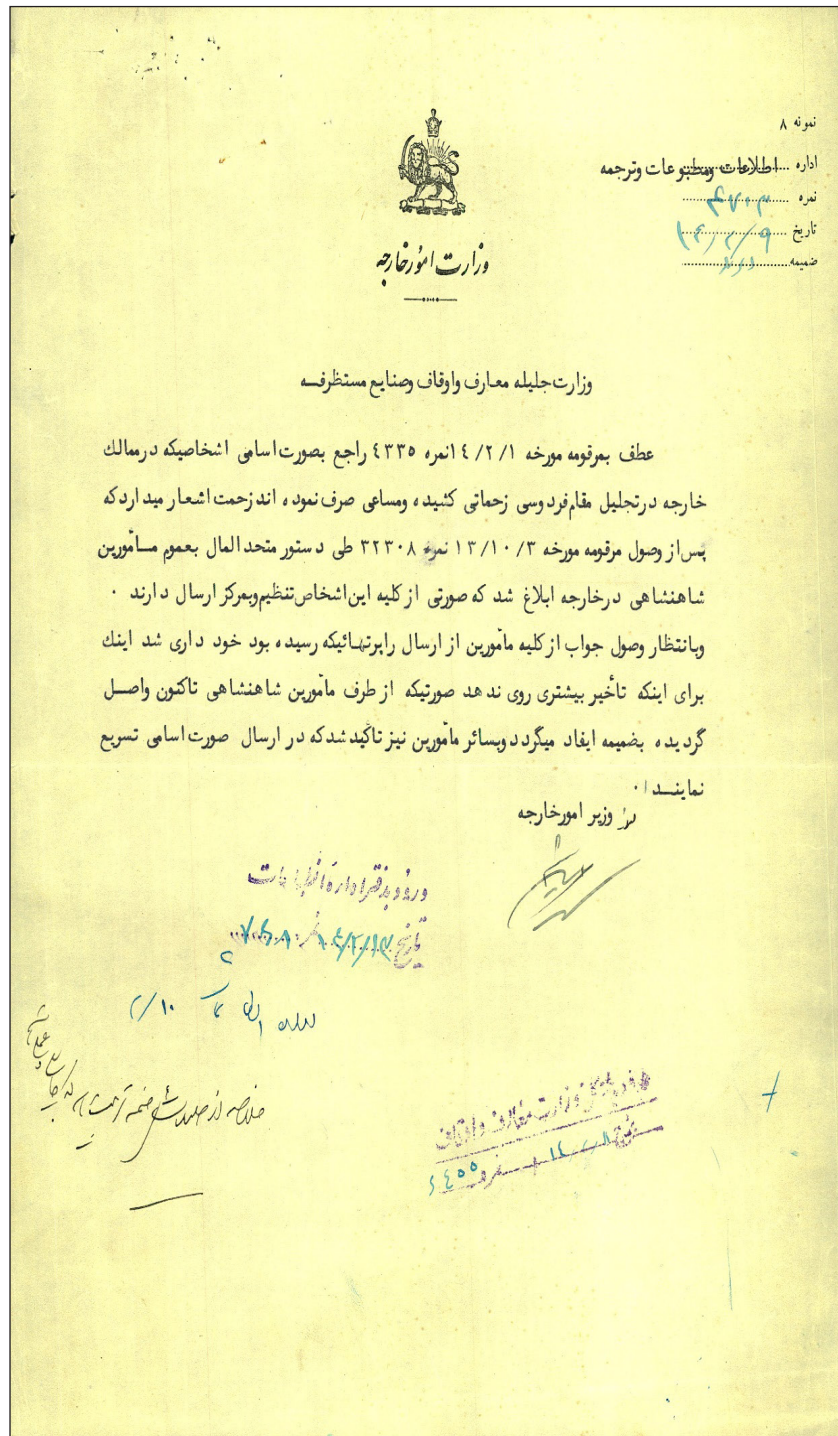 نمونه ۸
اداره اطلاعات ومطبوعات وترجمه
نمره ۴۷۰۳
تاریخ ۱۴/۲/۹
ضمیمه دارد
وزارت امور خارجه
وزارت جلیله معارف واوقاف وصنایع مستظرفه
عطف بمرقومه مورخه ۱۴/۲/۱ نمره ۴۳۳۵ راجع بصورت اسامی اشخاصیکه درممالك
خارجه درتجلیل مقام فردوسی زحماتی کشیده ومساعی صرف نموده اند زحمت اشعار میدارد که
پس از وصول مرقومه مورخه ۱۳/۱۰/۳ نمره ۳۲۳۰۸ طی دستور متحد المال بعموم مأمورین
شاهنشاهی درخارجه ابلاغ شد که صورتی از کلیه این اشخاص تنظیم وبمرکز ارسال دارند ۰
وبانتظار وصول جواب از کلیه مأمورین از ارسال راپرتهائیکه رسیده بود خود داری شد اینك
برای اینکه تأخیر بیشتری روی ندهد صورتیکه از طرف مأمورین شاهنشاهی تاکنون واصل
گردیده بضمیمه ایفاد میگردد وبسائر مأمورین نیز تاکید شد که در ارسال صورت اسامی تسریع
نمایند ۰
وزیر امورخارجه
ورود بدفتر اداره انطباعات
تاریخ ۱۴/۲/۱۳ نمره
۲/۱۰
وزارت معارف و اوقاف